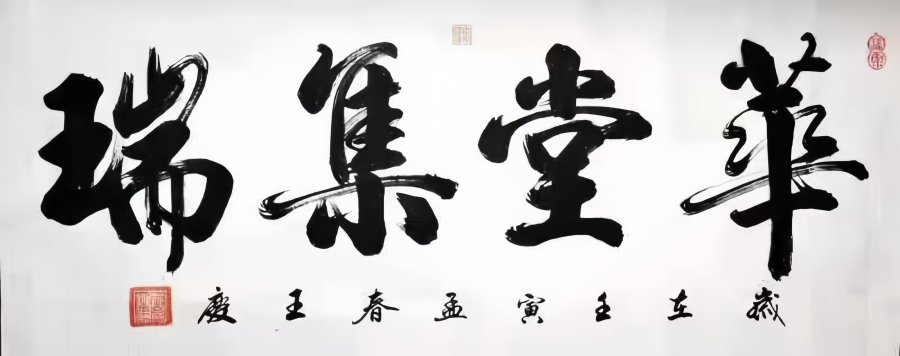 華堂集瑞
歲在壬寅孟春王慶